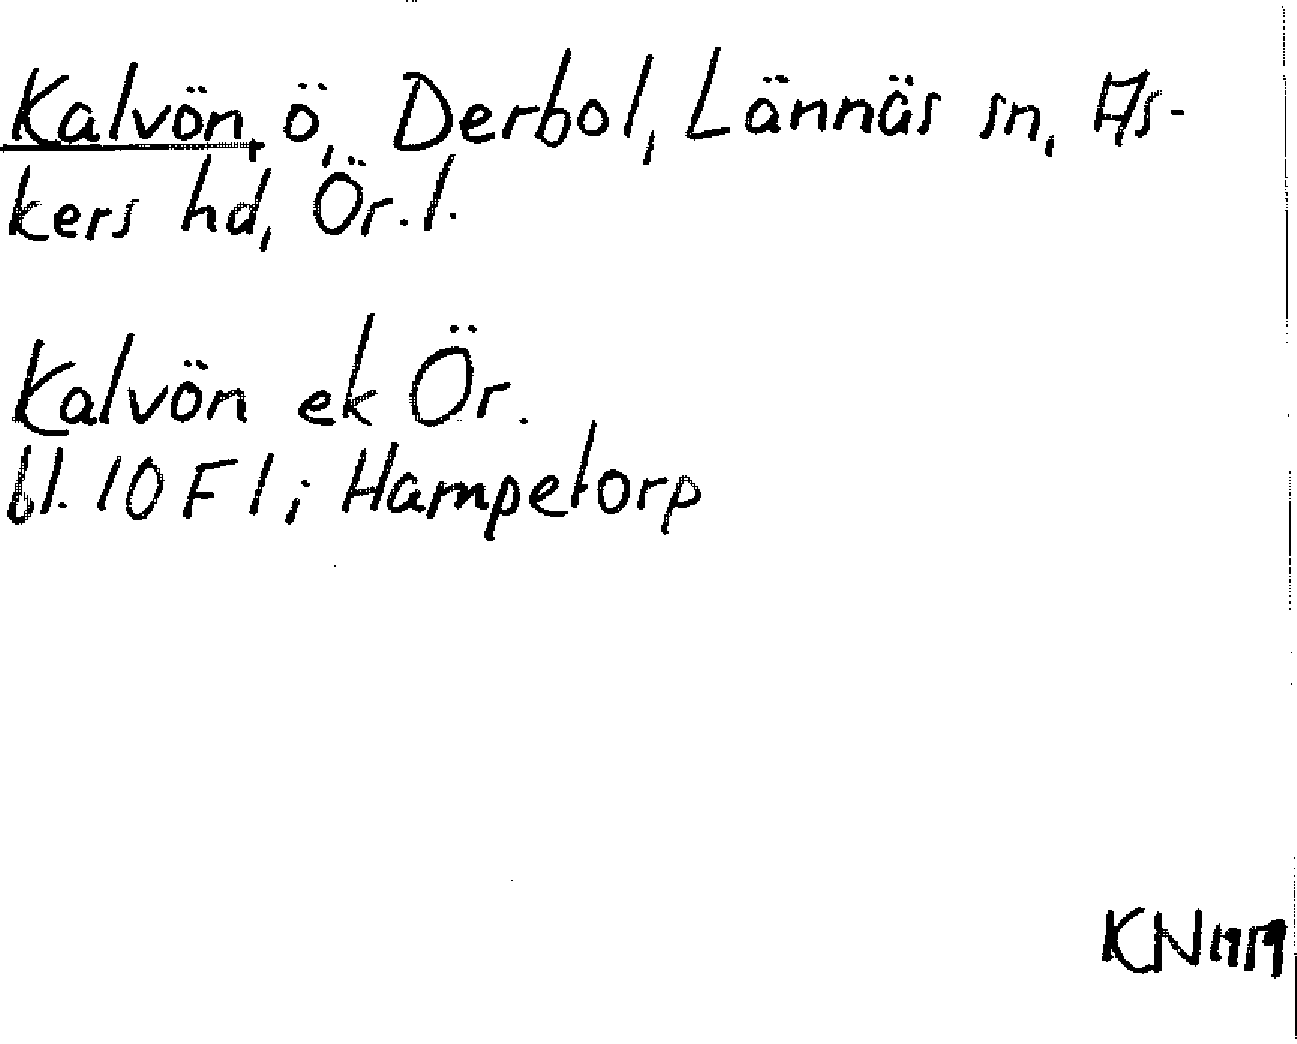 Kalvön, ö, Derbol, Lännäs sn, As-
kers hd, Ör. l.
Kalvön ek Ör.
bl. 10 F 1; Hampetorp
KN 1959